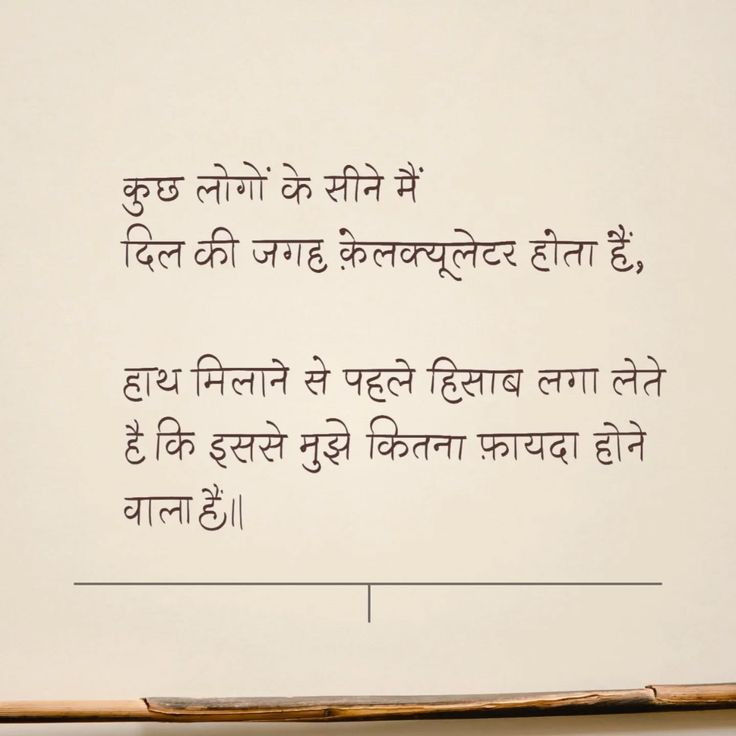 कुछ लोगों के सीने मैं
दिल की जगह क़ेलक्यूलेटर होता हैं,
हाथ मिलाने से पहले हिसाब लगा लेते
है कि इससे मुझे कितना फ़ायदा होने
वाला हैं॥